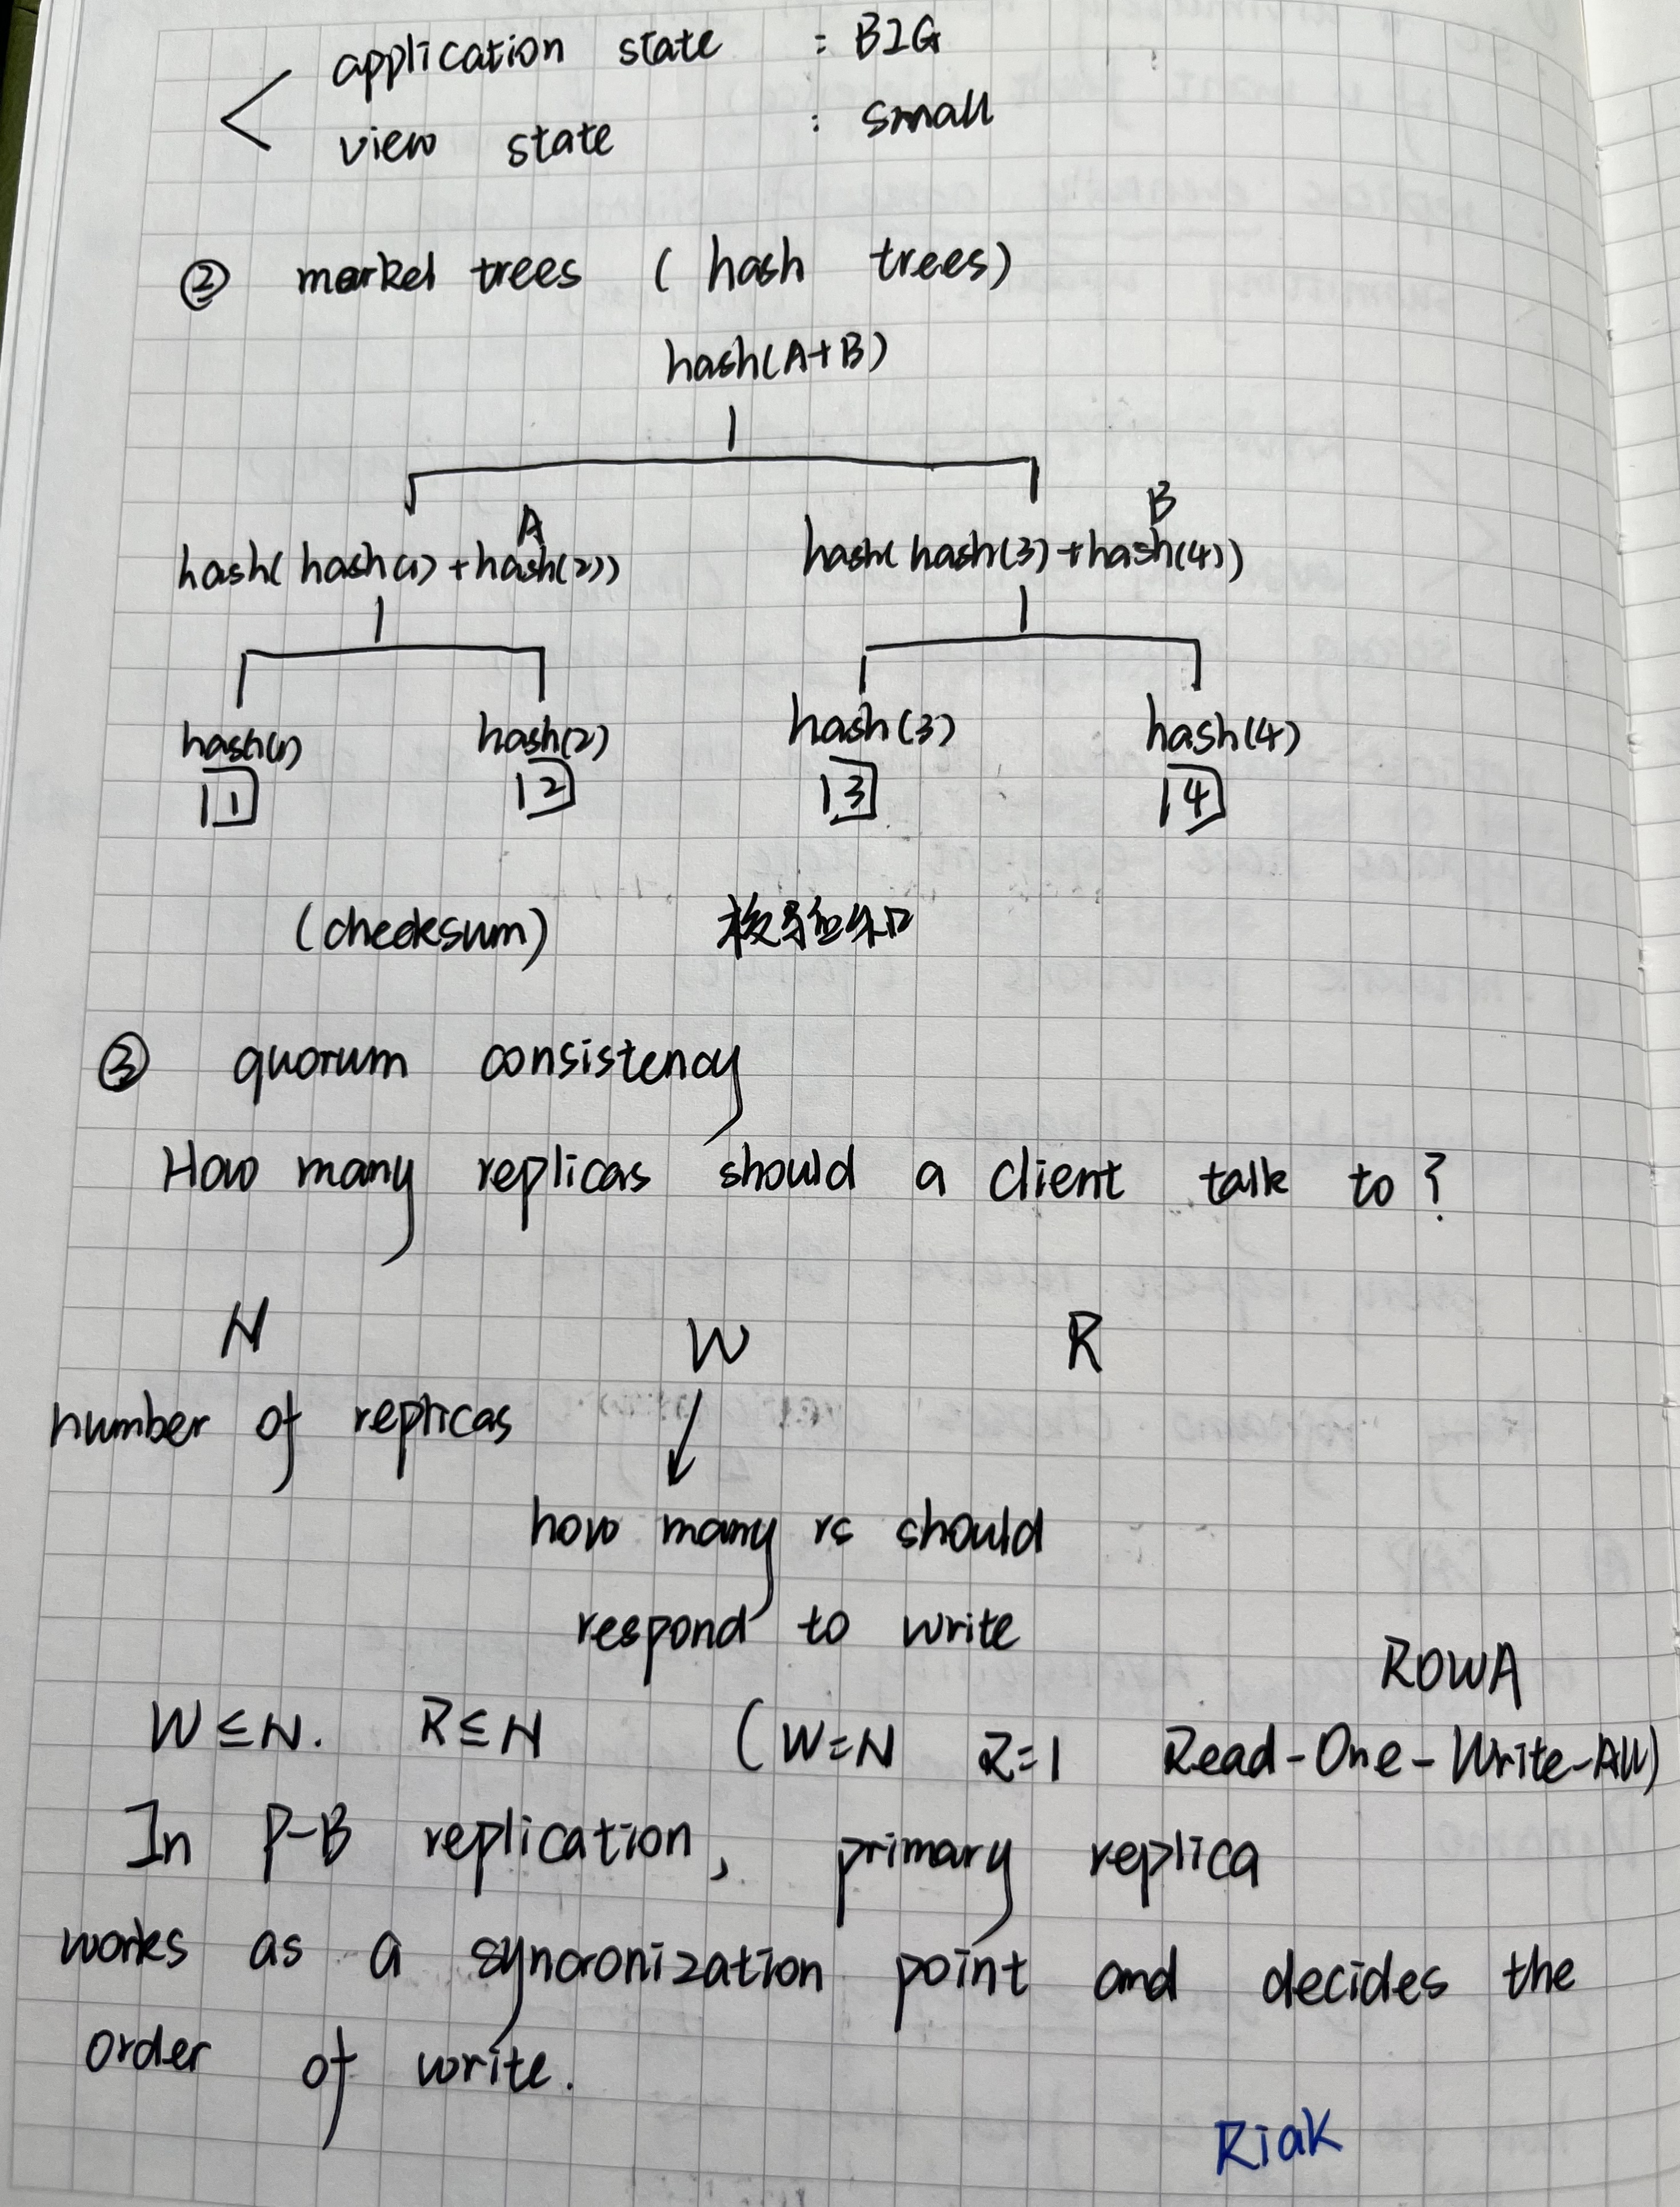 application state : BIG
view state : small
② merkel trees ( hash trees)
hash(A+B)
A B
hash( hash(1) + hash(2)) hash( hash(3) + hash(4))
hash(1) hash(2) hash(3) hash(4)
1 2 3 4
(checksum) 校验和
③ quorum consistency
How many replicas should a client talk to?
N W R
number of replicas
how many rs should
respond to write
ROWA
W ≤ N. R ≤ N (W=N R=1 Read-One-Write-All)
In P-B replication, primary replica
works as a syncronization point and decides the
order of write.
Riak